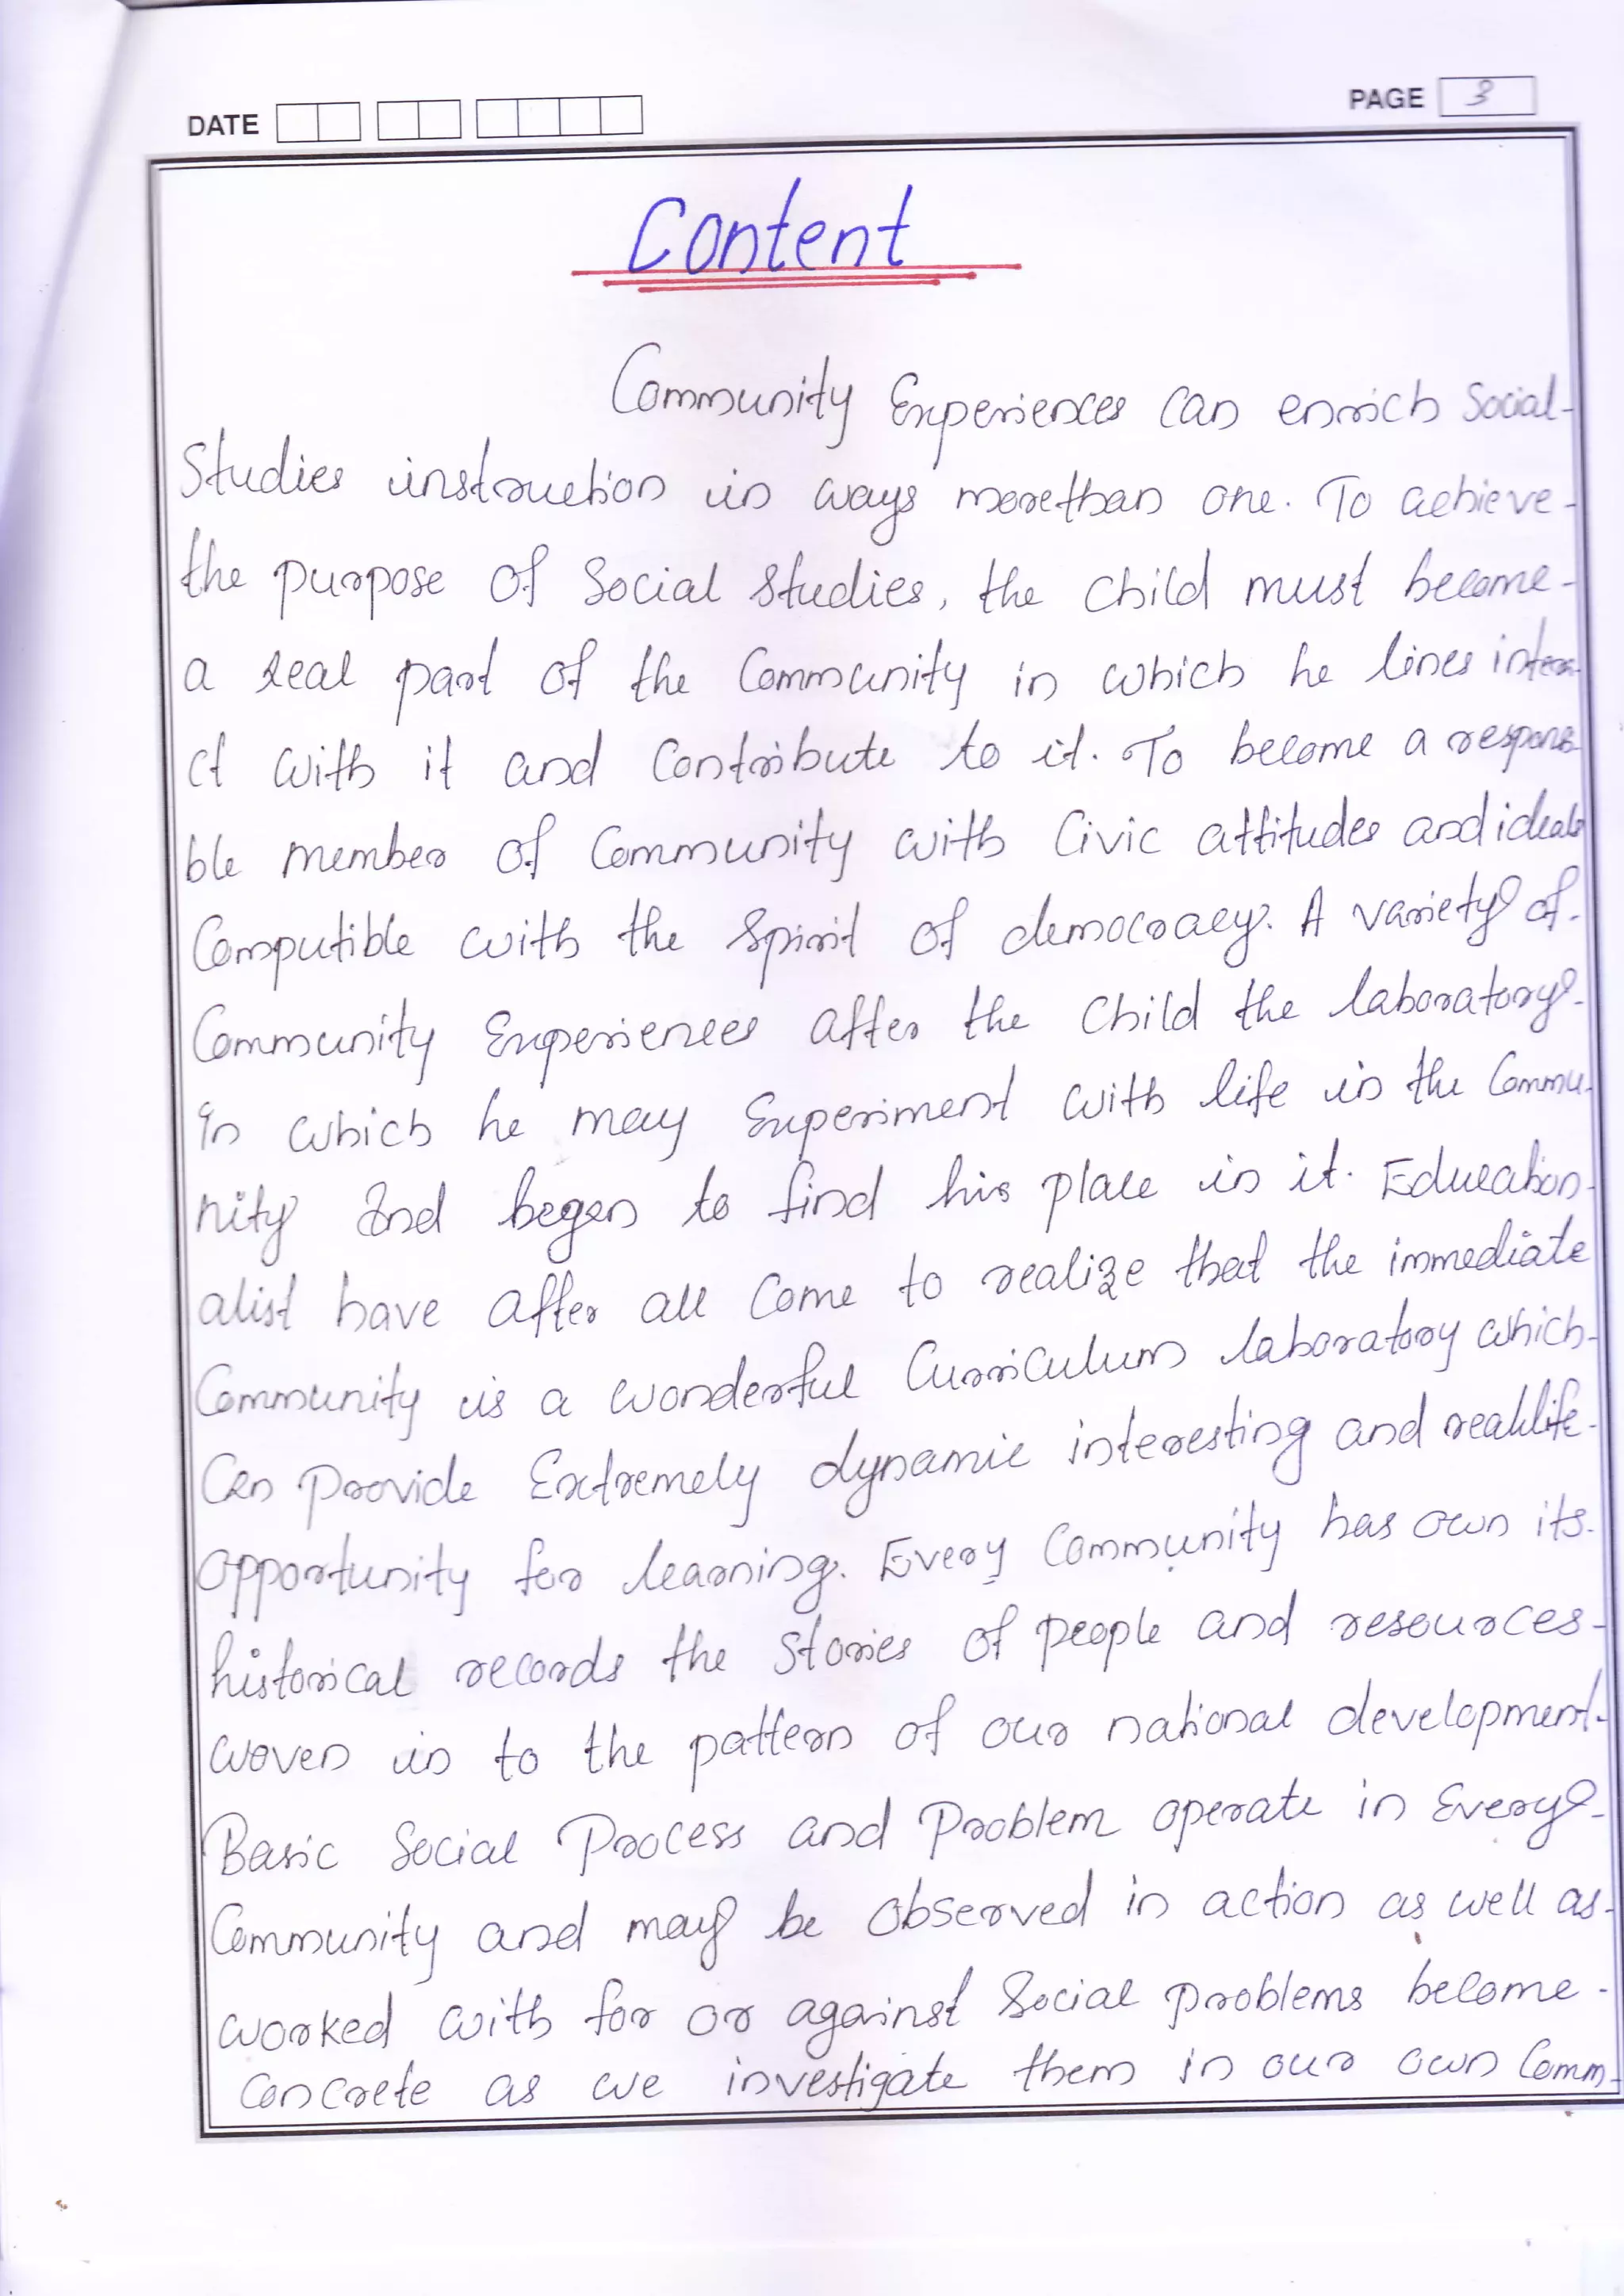 DATE
PAGE 3
Content
Community Experiences can enrich Social-
Studies instruction in ways morethan one. To achieve-
the purpose of Social Studies, the child must become-
a real part of the Community in which he lines intera-
ct with it and Contribute to it. To become a respons-
ble member of Community with Civic attitudes and ideals
Computible with the Spirit of democracy. A variety of-
Community Experiences after the Child the laboratory-
in which he may Experiment with life in the Commu-
nity And began to find his place in it. Education-
alist have after all Come to realize that the immediate
Community is a wonderful Curriculum laboratory which-
Can Provide Extremely dynamic interesting and reallife-
opportunity for learning. Every Community has own its-
historical records the Stories of people and resources-
woven in to the pattern of our national development-
Basic Social Process and Problem operate in Every-
Community and may be observed in action as well as-
worked with for or against Social problems become-
Concrete as we investigate them in our own Comm-